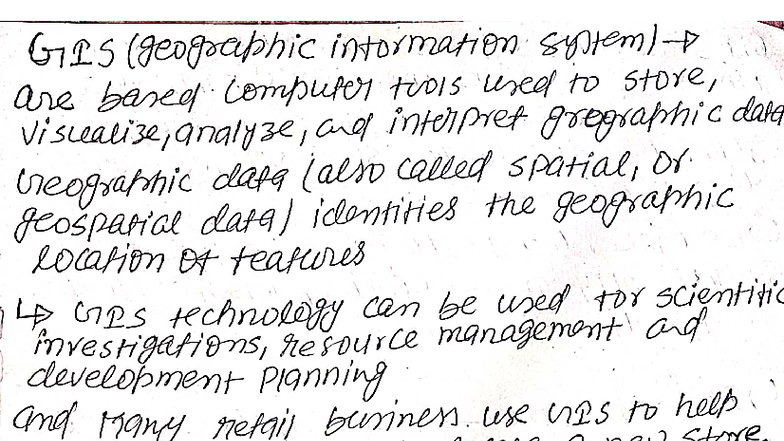 GIS (geographic information system) →
are based computer tools used to store,
visualize, analyze, and interpret greographic data
Geographic data (also called spatial, or
geospatial data) identities the geographic
location of features
↳ GIS technology can be used for scientific
investigations, resource management and
development planning
and many retail business use GIS to help
a new store